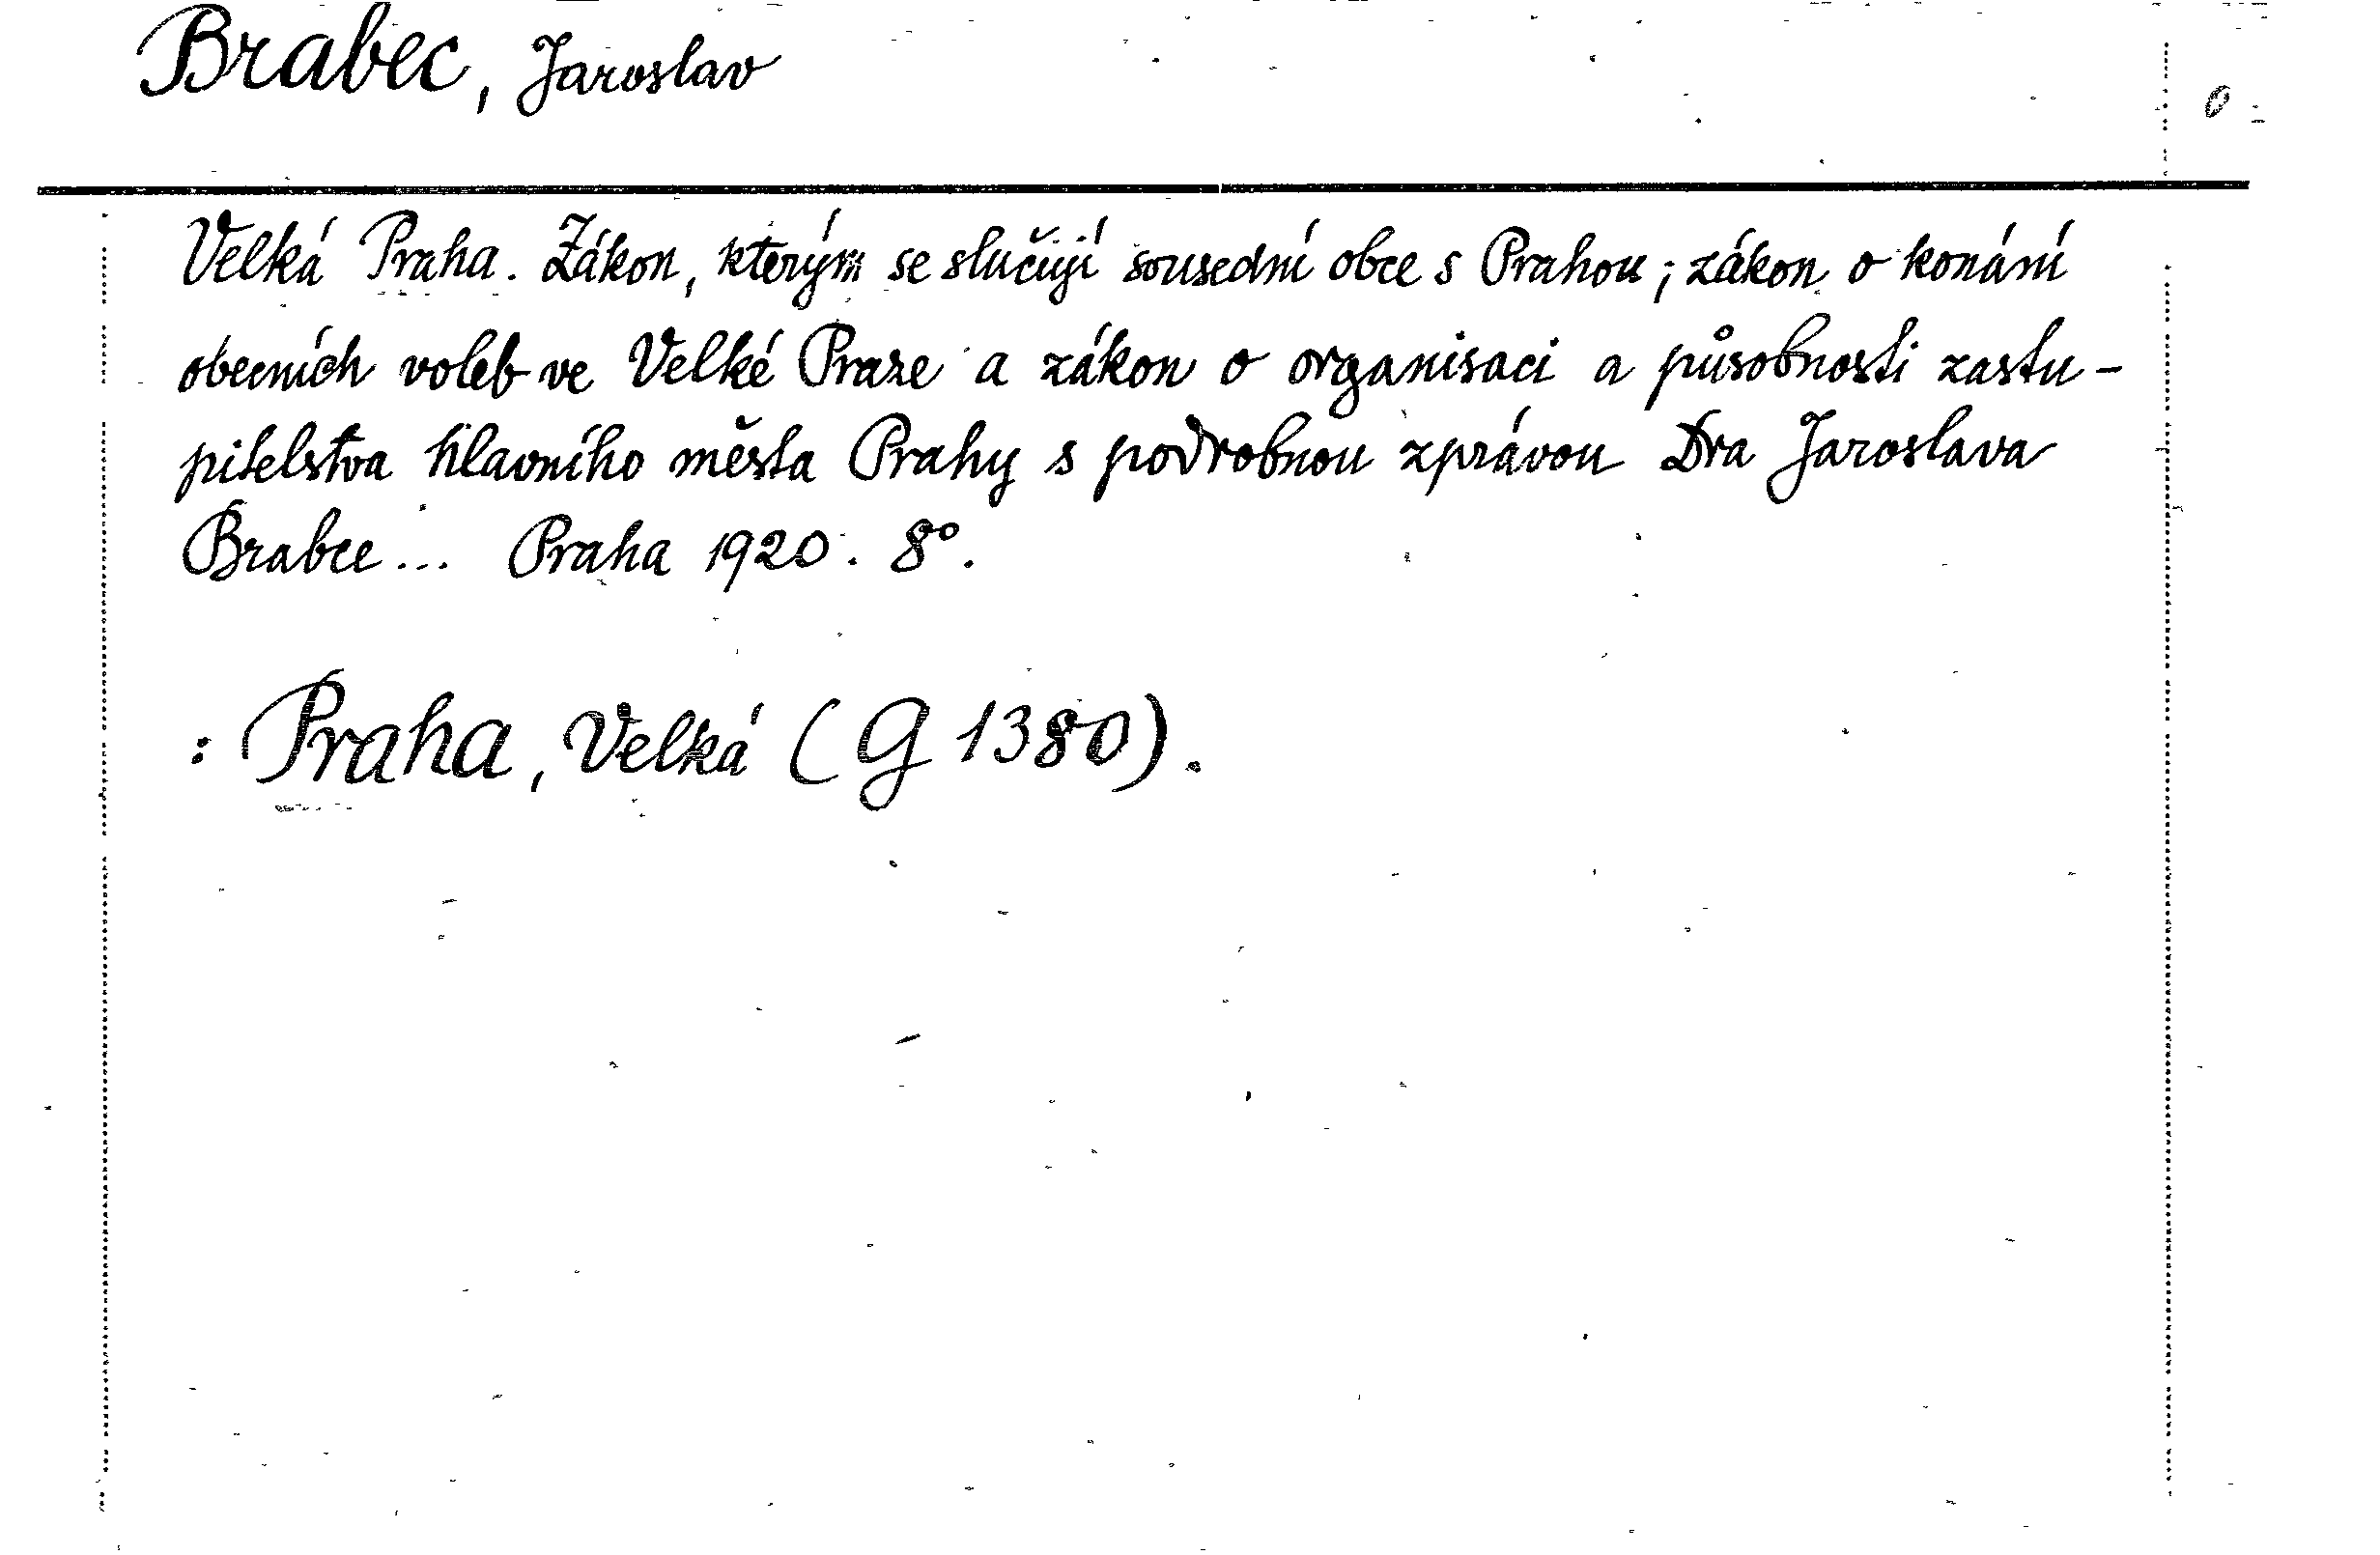 Brabec, Jaroslav
0
Velká Praha. Zákon, kterým se slučují sousední obce s Prahou; zákon o konání
obecních voleb ve Velké Praze a zákon o organisaci a působnosti zastu-
pitelstva hlavního města Prahy s podrobnou zprávou Dra Jaroslava
Brabce... Praha 1920. 8°.
: Praha, Velká (G 1380).